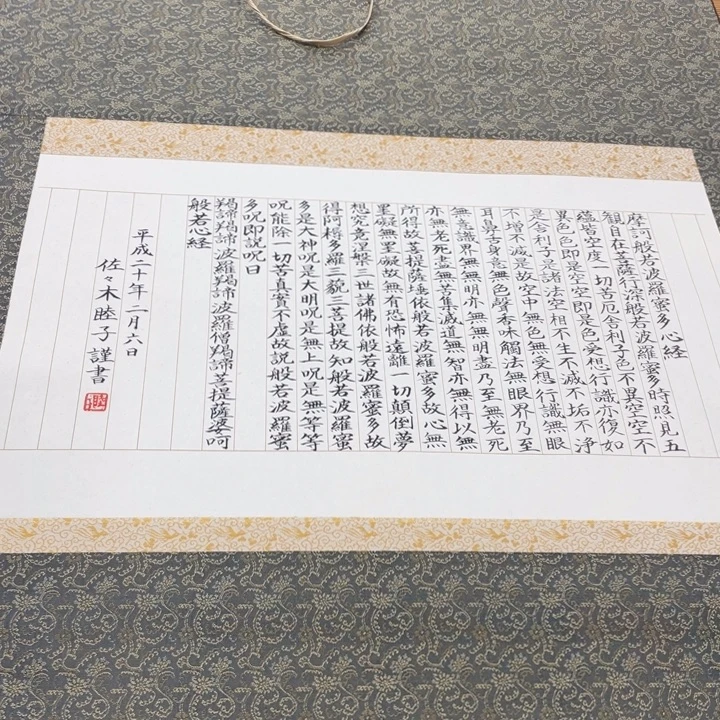 摩訶般若波羅蜜多心経
観自在菩薩行深般若波羅蜜多時照見五
蘊皆空度一切苦厄舎利子色不異空空不
異色色即是空空即是色受想行識亦復如
是舎利子是諸法空相不生不滅不垢不浄
不増不減是故空中無色無受想行識無眼
耳鼻舌身意無色聲香味觸法無眼界乃至
無意識界無無明亦無無明盡乃至無老死
亦無老死盡無苦集滅道無智亦無得以無
所得故菩提薩埵依般若波羅蜜多故心無
罣礙無罣礙故無有恐怖遠離一切顛倒夢
想究竟涅槃三世諸佛依般若波羅蜜多故
得阿耨多羅三藐三菩提故知般若波羅蜜
多是大神呪是大明呪是無上呪是無等等
呪能除一切苦真實不虚故説般若波羅蜜
多呪即説呪曰
羯諦羯諦波羅羯諦波羅僧羯諦菩提薩婆呵
般若心経
平成二十年二月六日
佐々木睦子謹書